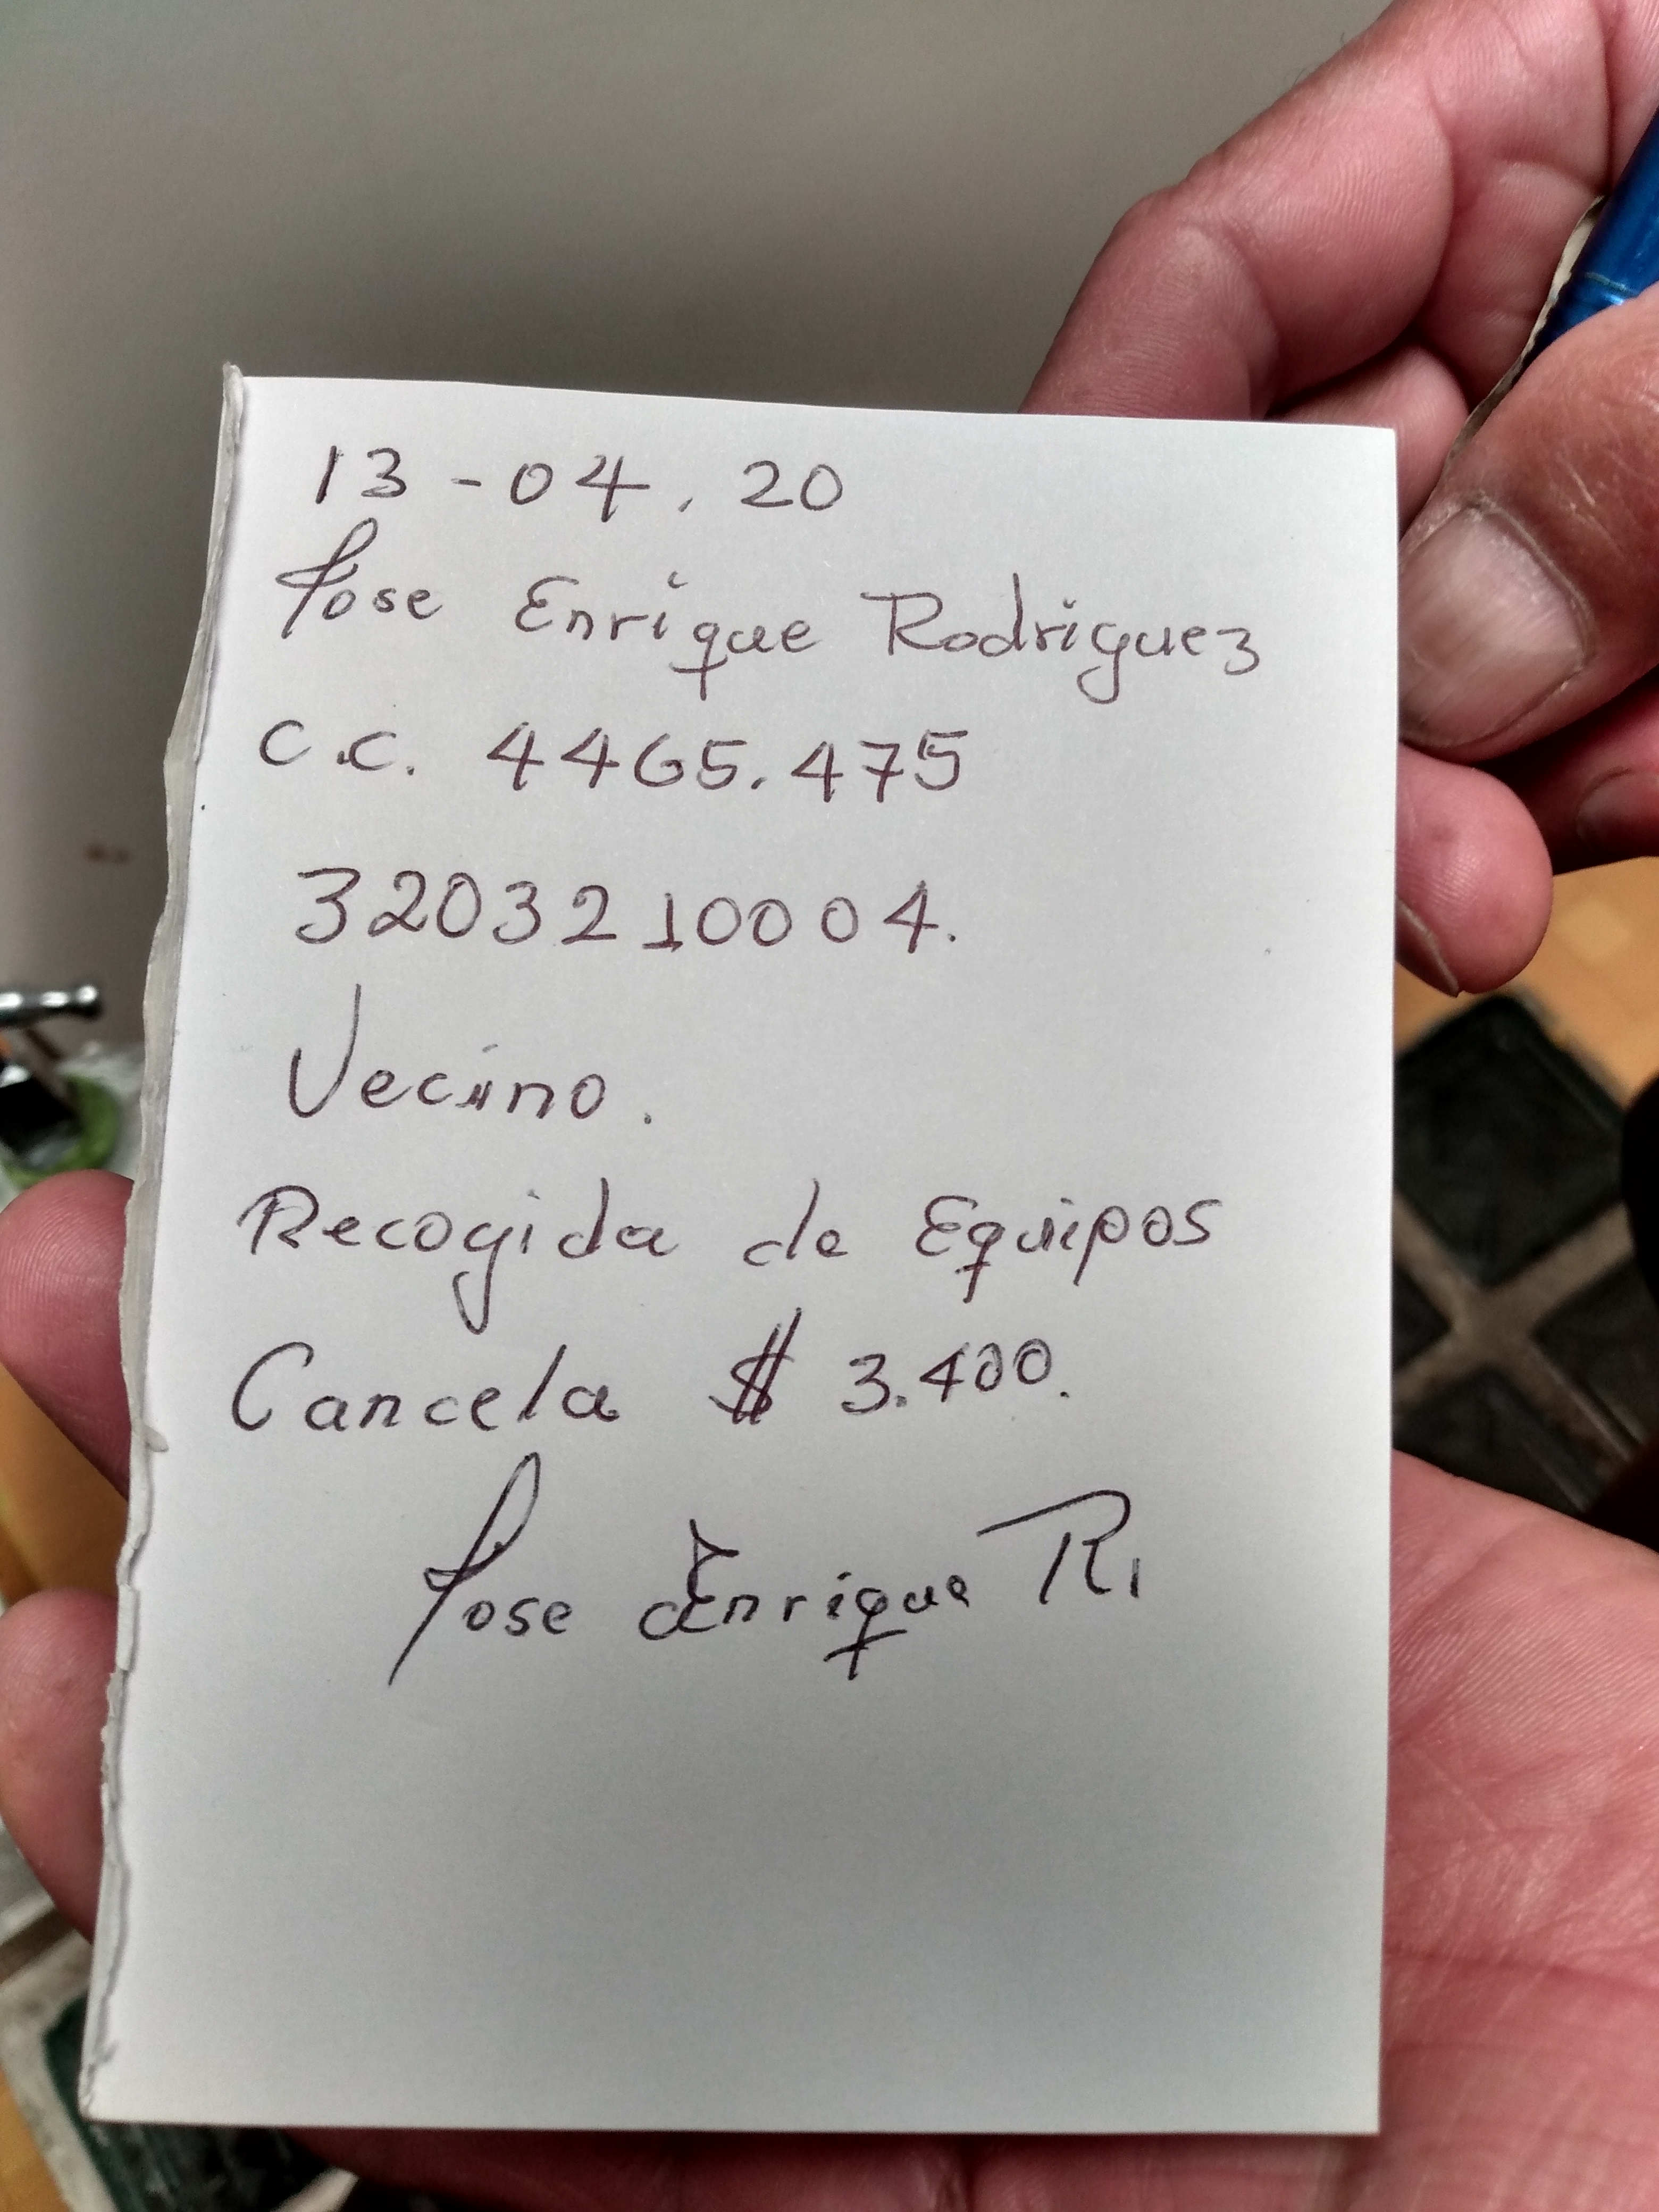 13-04.20
Jose Enrique Rodriguez
C.C. 4465.475
3203210004.
Vecino.
Recogida de Equipos
Cancela $ 3.400.
Jose Enrique R.